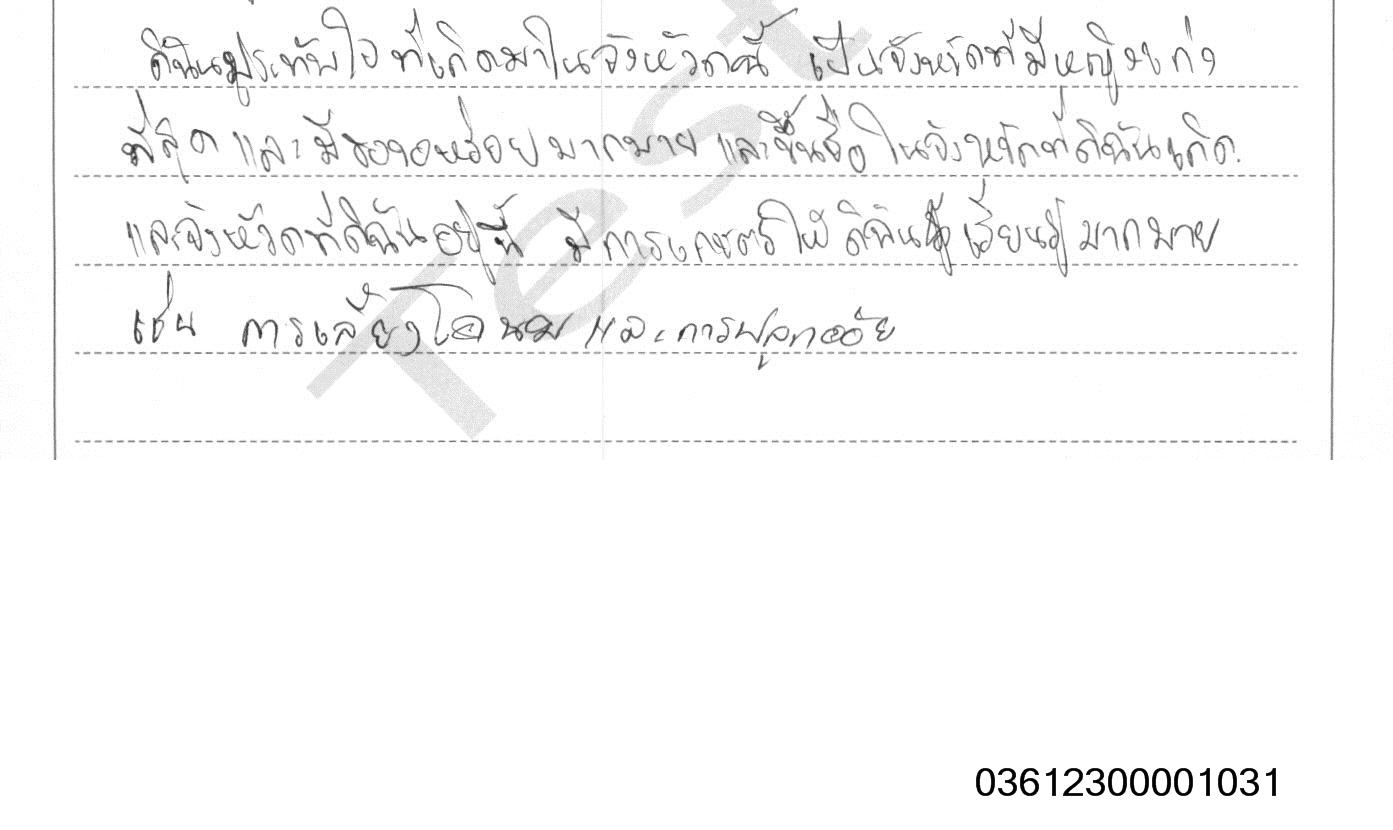 ดิฉันประทับใจ ที่เกิดมาในจังหวัดนี้ เป็นจังหวัดที่มีหญิงเก่ง
ที่สุด และมีของอร่อยมากมาย และขึ้นชื่อ ในจังหวัดที่ดิฉันเกิด.
และจังหวัดที่ดิฉันอยู่นี้ มีการเกษตรให้ดิฉัน เรียนรู้มากมาย
เช่น การเลี้ยงโคนม และการปลูกอ้อย
Test
03612300001031